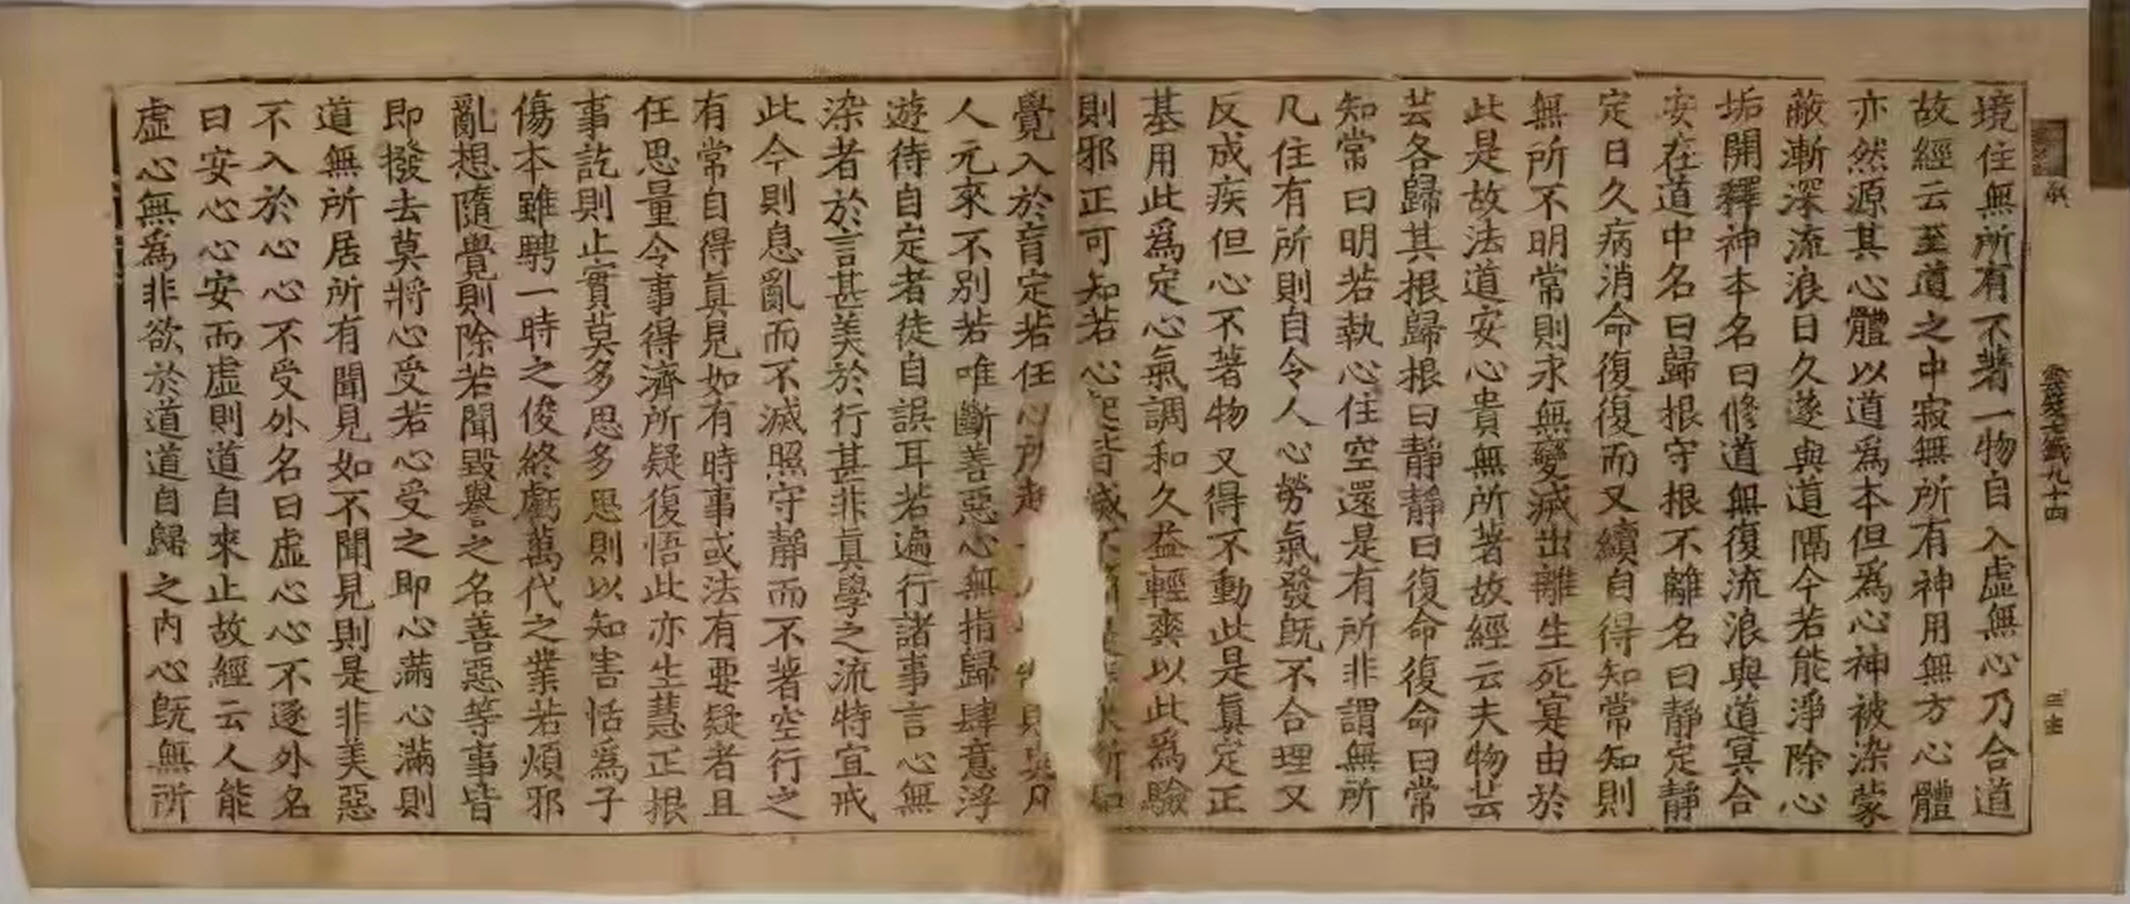 境住無所有不著一物自入虛無心乃合道
故經云至道之中寂無所有神用無方心體
亦然源其心體以道爲本但爲心神被染蒙
蔽漸深流浪日久遂與道隔今若能淨除心
垢開釋神本名曰修道無復流浪與道冥合
安在道中名曰歸根守根不離名曰靜定靜
定日久病消命復復而又續自得知常知則
無所不明常則永無變滅出離生死寔由於
此是故法道安心貴無所著故經云夫物芸
芸各歸其根歸根曰靜靜曰復命復命曰常
知常曰明若執心住空還是有所非謂無所
凡住有所則自令人心勞氣發旣不合理又
反成疾但心不著物又得不動此是眞定正
基用此爲定心氣調和久益輕爽以此爲驗
則邪正可知若心起皆滅不
覺入於盲定若任心所起
人元來不別若唯斷善惡心無指歸肆意浮
遊待自定者徒自誤耳若遍行諸事言心無
染者於言甚美於行甚非眞學之流特宜戒
此今則息亂而不滅照守靜而不著空行之
有常自得眞見如有時事或法有要疑者且
任思量令事得濟所疑復悟此亦生慧正根
事訖則止實莫多思多思則以知害恬爲子
傷本雖騁一時之俊終虧萬代之業若煩邪
亂想隨覺則除若聞毀譽之名善惡等事皆
即撥去莫將心受若心受之即心滿心滿則
道無所居所有聞見如不聞見則是非美惡
不入於心心不受外名曰虛心心不逐外名
曰安心心安而虛則道自來止故經云人能
虛心無爲非欲於道道自歸之內心旣無所
雲笈七籤九十四